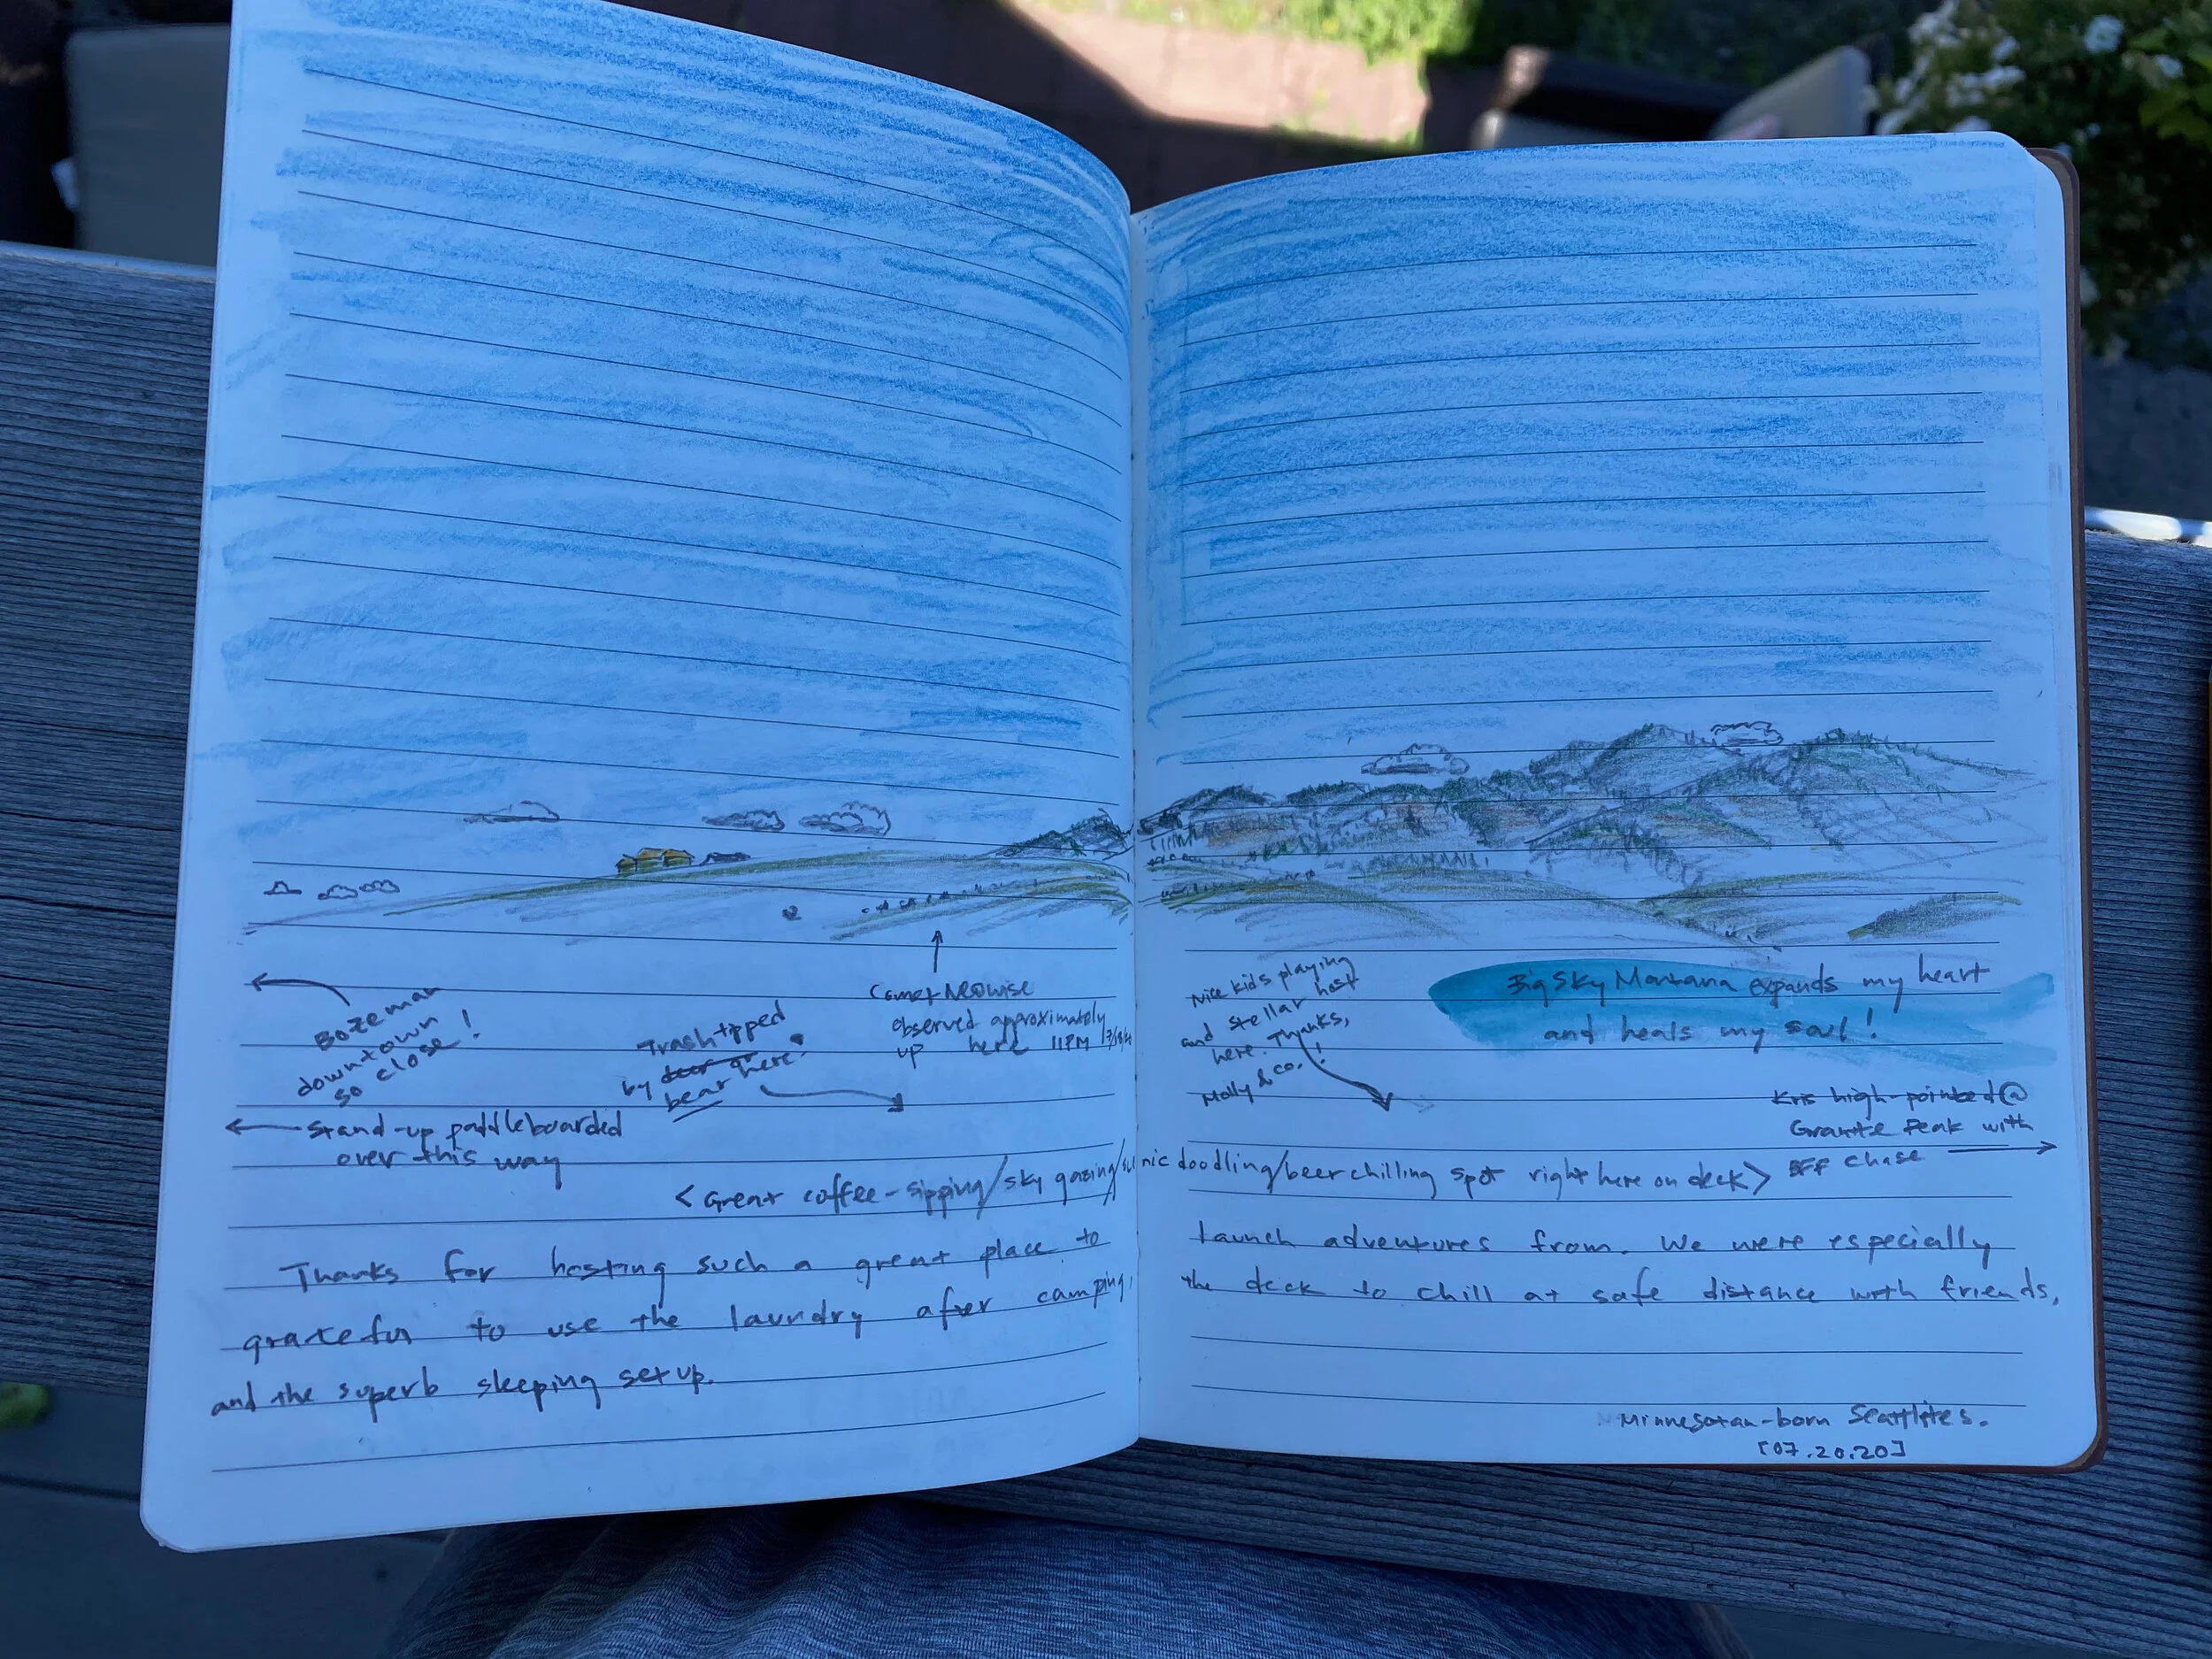 Bozeman
downtown
so close!
Stand-up paddleboarded
over this way
Trash tipped
by deer or
bear here.
Comet Neowise
observed approximately
up here 11PM
Nice kids playing
and stellar host
here. Thanks,
Molly & co.!
Big Sky Montana expands my heart
and heals my soul!
Kris high-pointed @
Granite Peak with
BFF Chase
<Great coffee-sipping/sky gazing/scenic doodling/beer chilling spot right here on deck>
Thanks for hosting such a great place to launch adventures from. We were especially
grateful to use the laundry after camping, the deck to chill at safe distance with friends,
and the superb sleeping setup.
Minnesotan-born Seattlites.
[07.20.20]